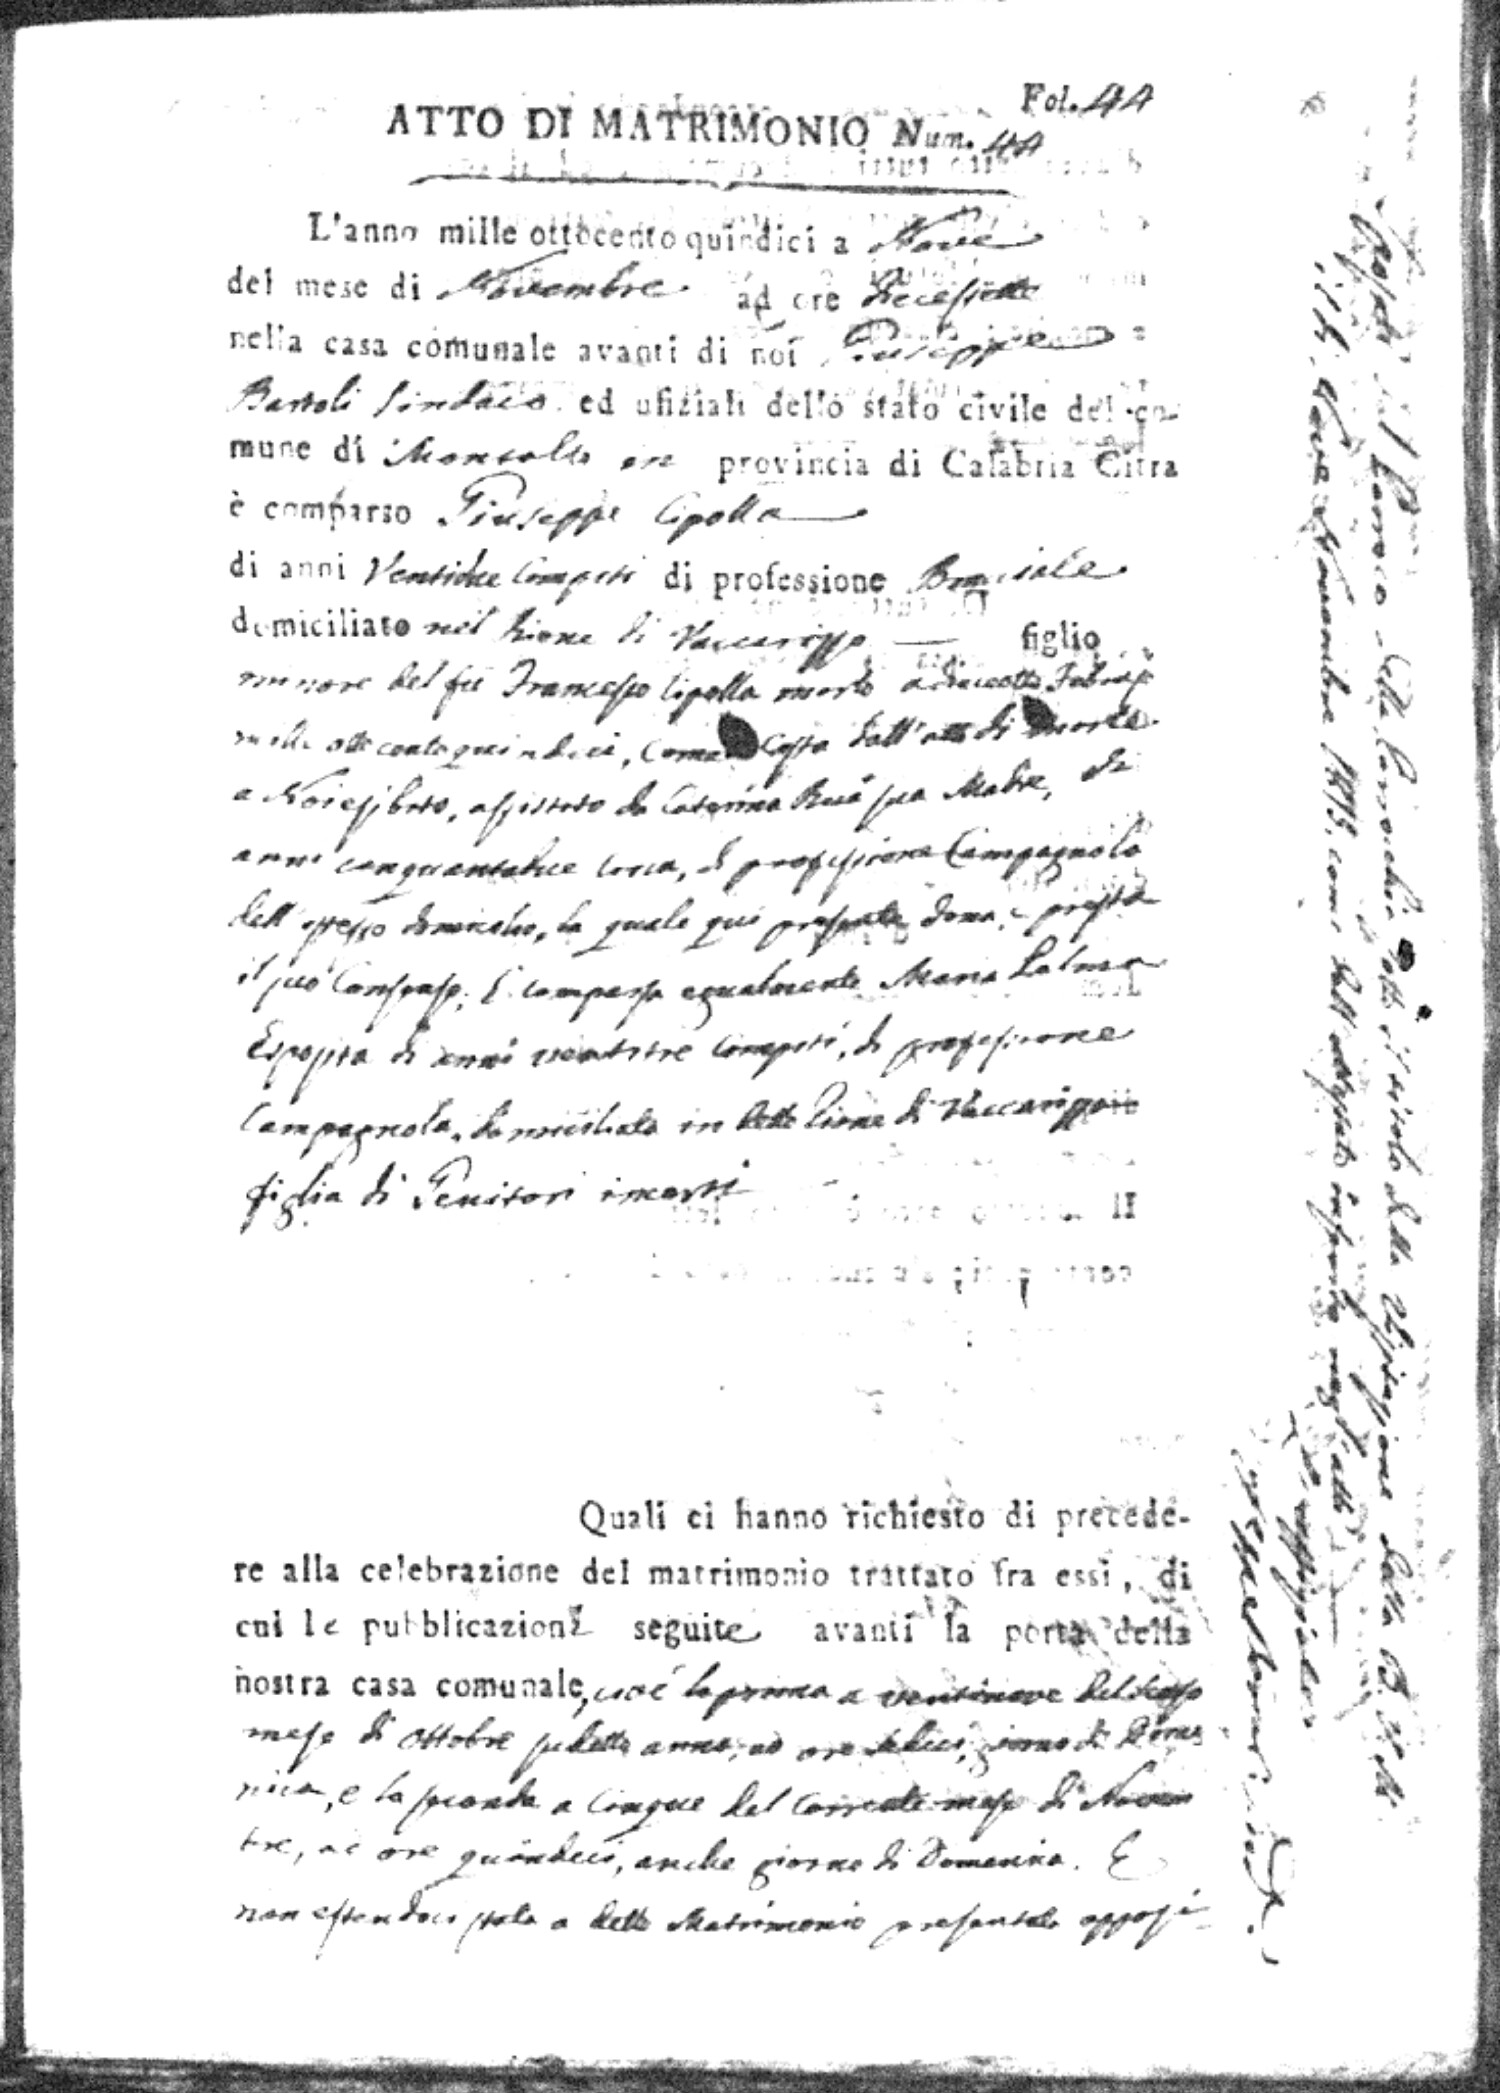 Fol. 44
ATTO DI MATRIMONIO Num. 44
L'anno mille ottocento quindici a Nove
del mese di Novembre ad ore diecessette
nella casa comunale avanti di noi Giuseppe
Bartoli Sindaco ed ufiziali dello stato civile del co-
mune di Montalto in provincia di Calabria Citra
è comparso Giuseppe Cipolla
di anni Ventidue Compiti di professione Bracciale
domiciliato nel Rione di Vaccarizzo figlio
minore del fù Francesco Cipolla morto a
mille ottocento quindici, Come Costa dall'atto di morte
assistito da Caterina Ruà sua Madre, di
anni cinquantadue circa, di professione Campagnola
dell'istesso domicilio, la quale quì presente dona, e presta
il suo Consenso. È comparsa egualmente Maria Palma
Esposita di anni ventitre Compiti, di professione
Campagnola, domiciliata in detto Rione di Vaccarizzo
figlia di Genitori incerti
Quali ci hanno richiesto di precede-
re alla celebrazione del matrimonio trattato fra essi, di
cui le pubblicazioni seguite avanti la porta della
nostra casa comunale, cioè la prima a ventinove del scorso
mese di Ottobre sudetto anno, ad ore sedici, giorno di Dome
nica, e la seconda a Cinque del Corrente mese di Novem
bre, ad ore quindici, anche giorno di Domenica. E
non essendoci stata a detto Matrimonio presentata opposi
del Parroco della Parrocchia sotto il titolo della Visitazione della B. V. M.
Nove Novembre 1815. come dall'attestato inserito negl'atti